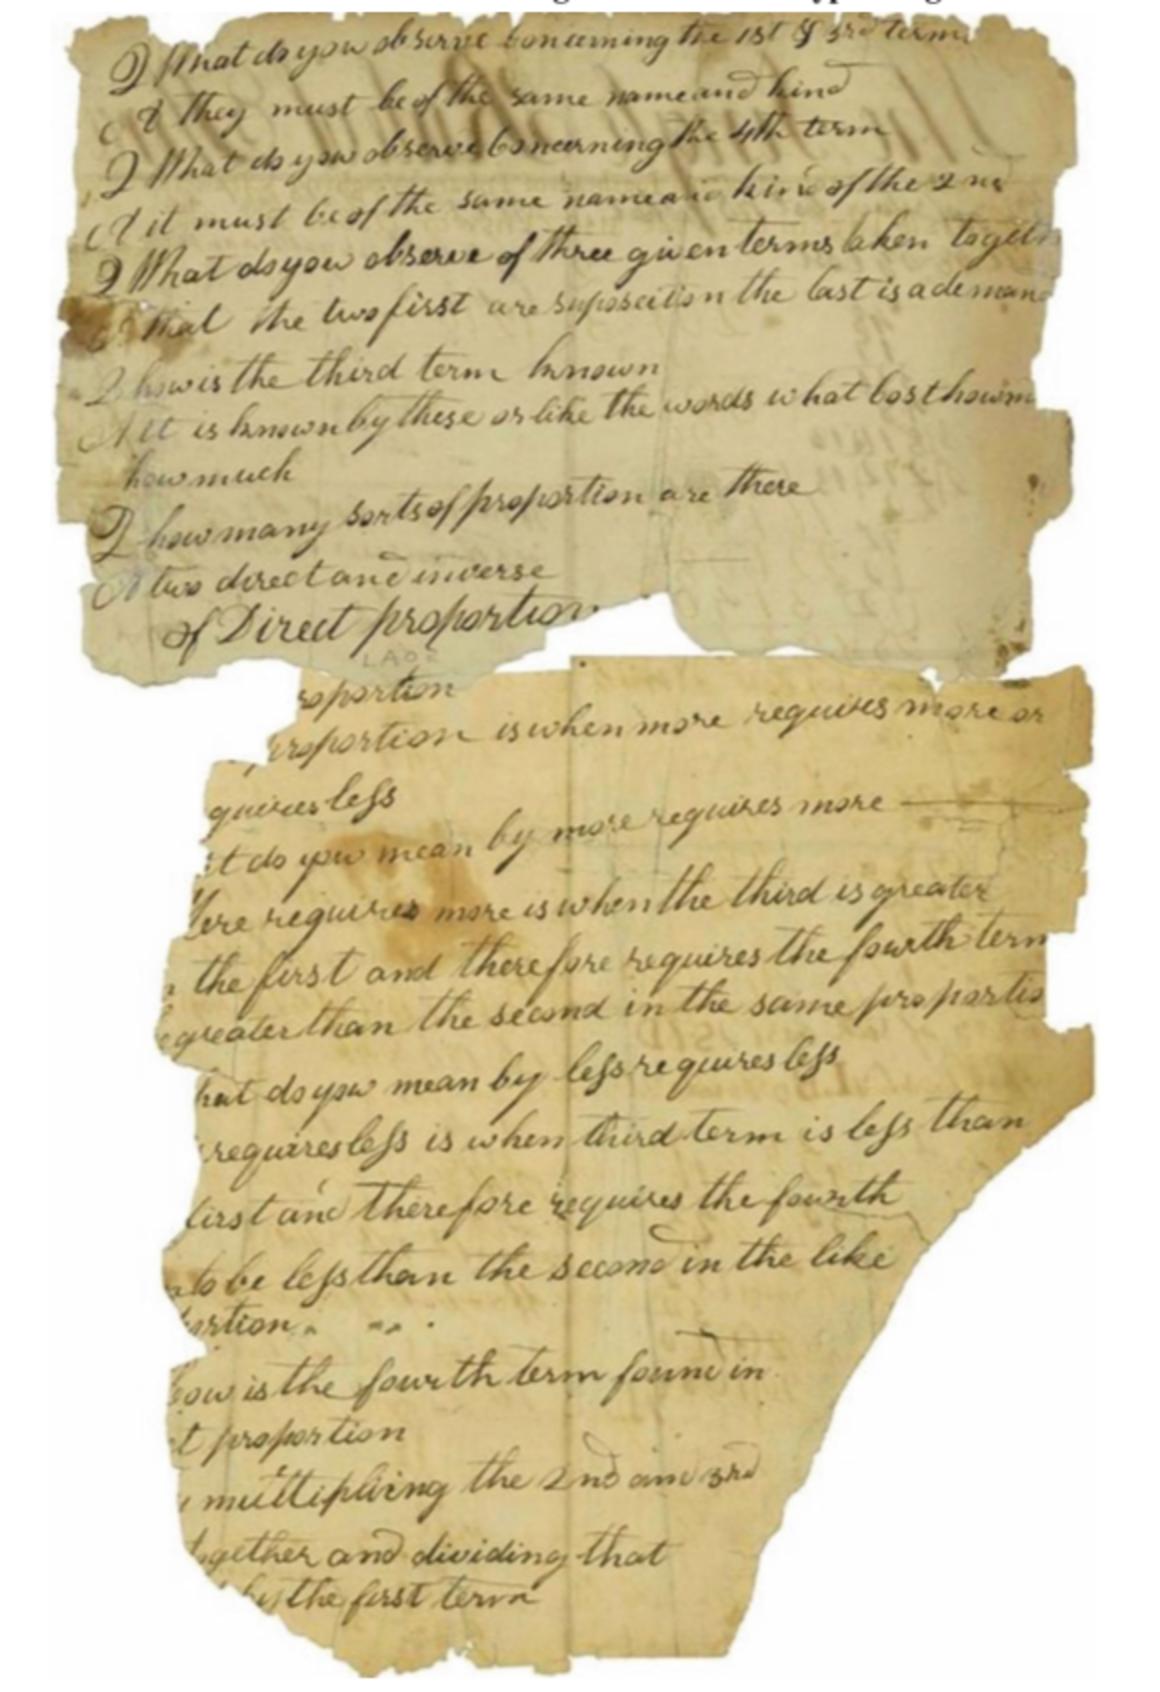 Q What do you observe concerning the 1st & 3rd terms
A they must be of the same name and kind
Q What do you observe concerning the 4th term
A it must be of the same name and kind of the 2nd
Q What do you observe of three given terms taken togeth
A that the two first are suposeition the last is a demand
Q how is the third term known
A it is known by these or like the words what cost how m
how much
Q how many sorts of proportion are there
A two direct and inverse
of Direct proportion
roportion
proportion is when more requires more or
quires less
t do you mean by more requires more
ore requires more is when the third is greater
the first and therefore requires the fourth term
greater than the second in the same proportio
hat do you mean by less requires less
requires less is when third term is less than
first and therefore requires the fourth
to be less than the second in the like
ortion
how is the fourth term found in
t proportion
multipliing the 2nd and 3rd
together and dividing that
by the first term